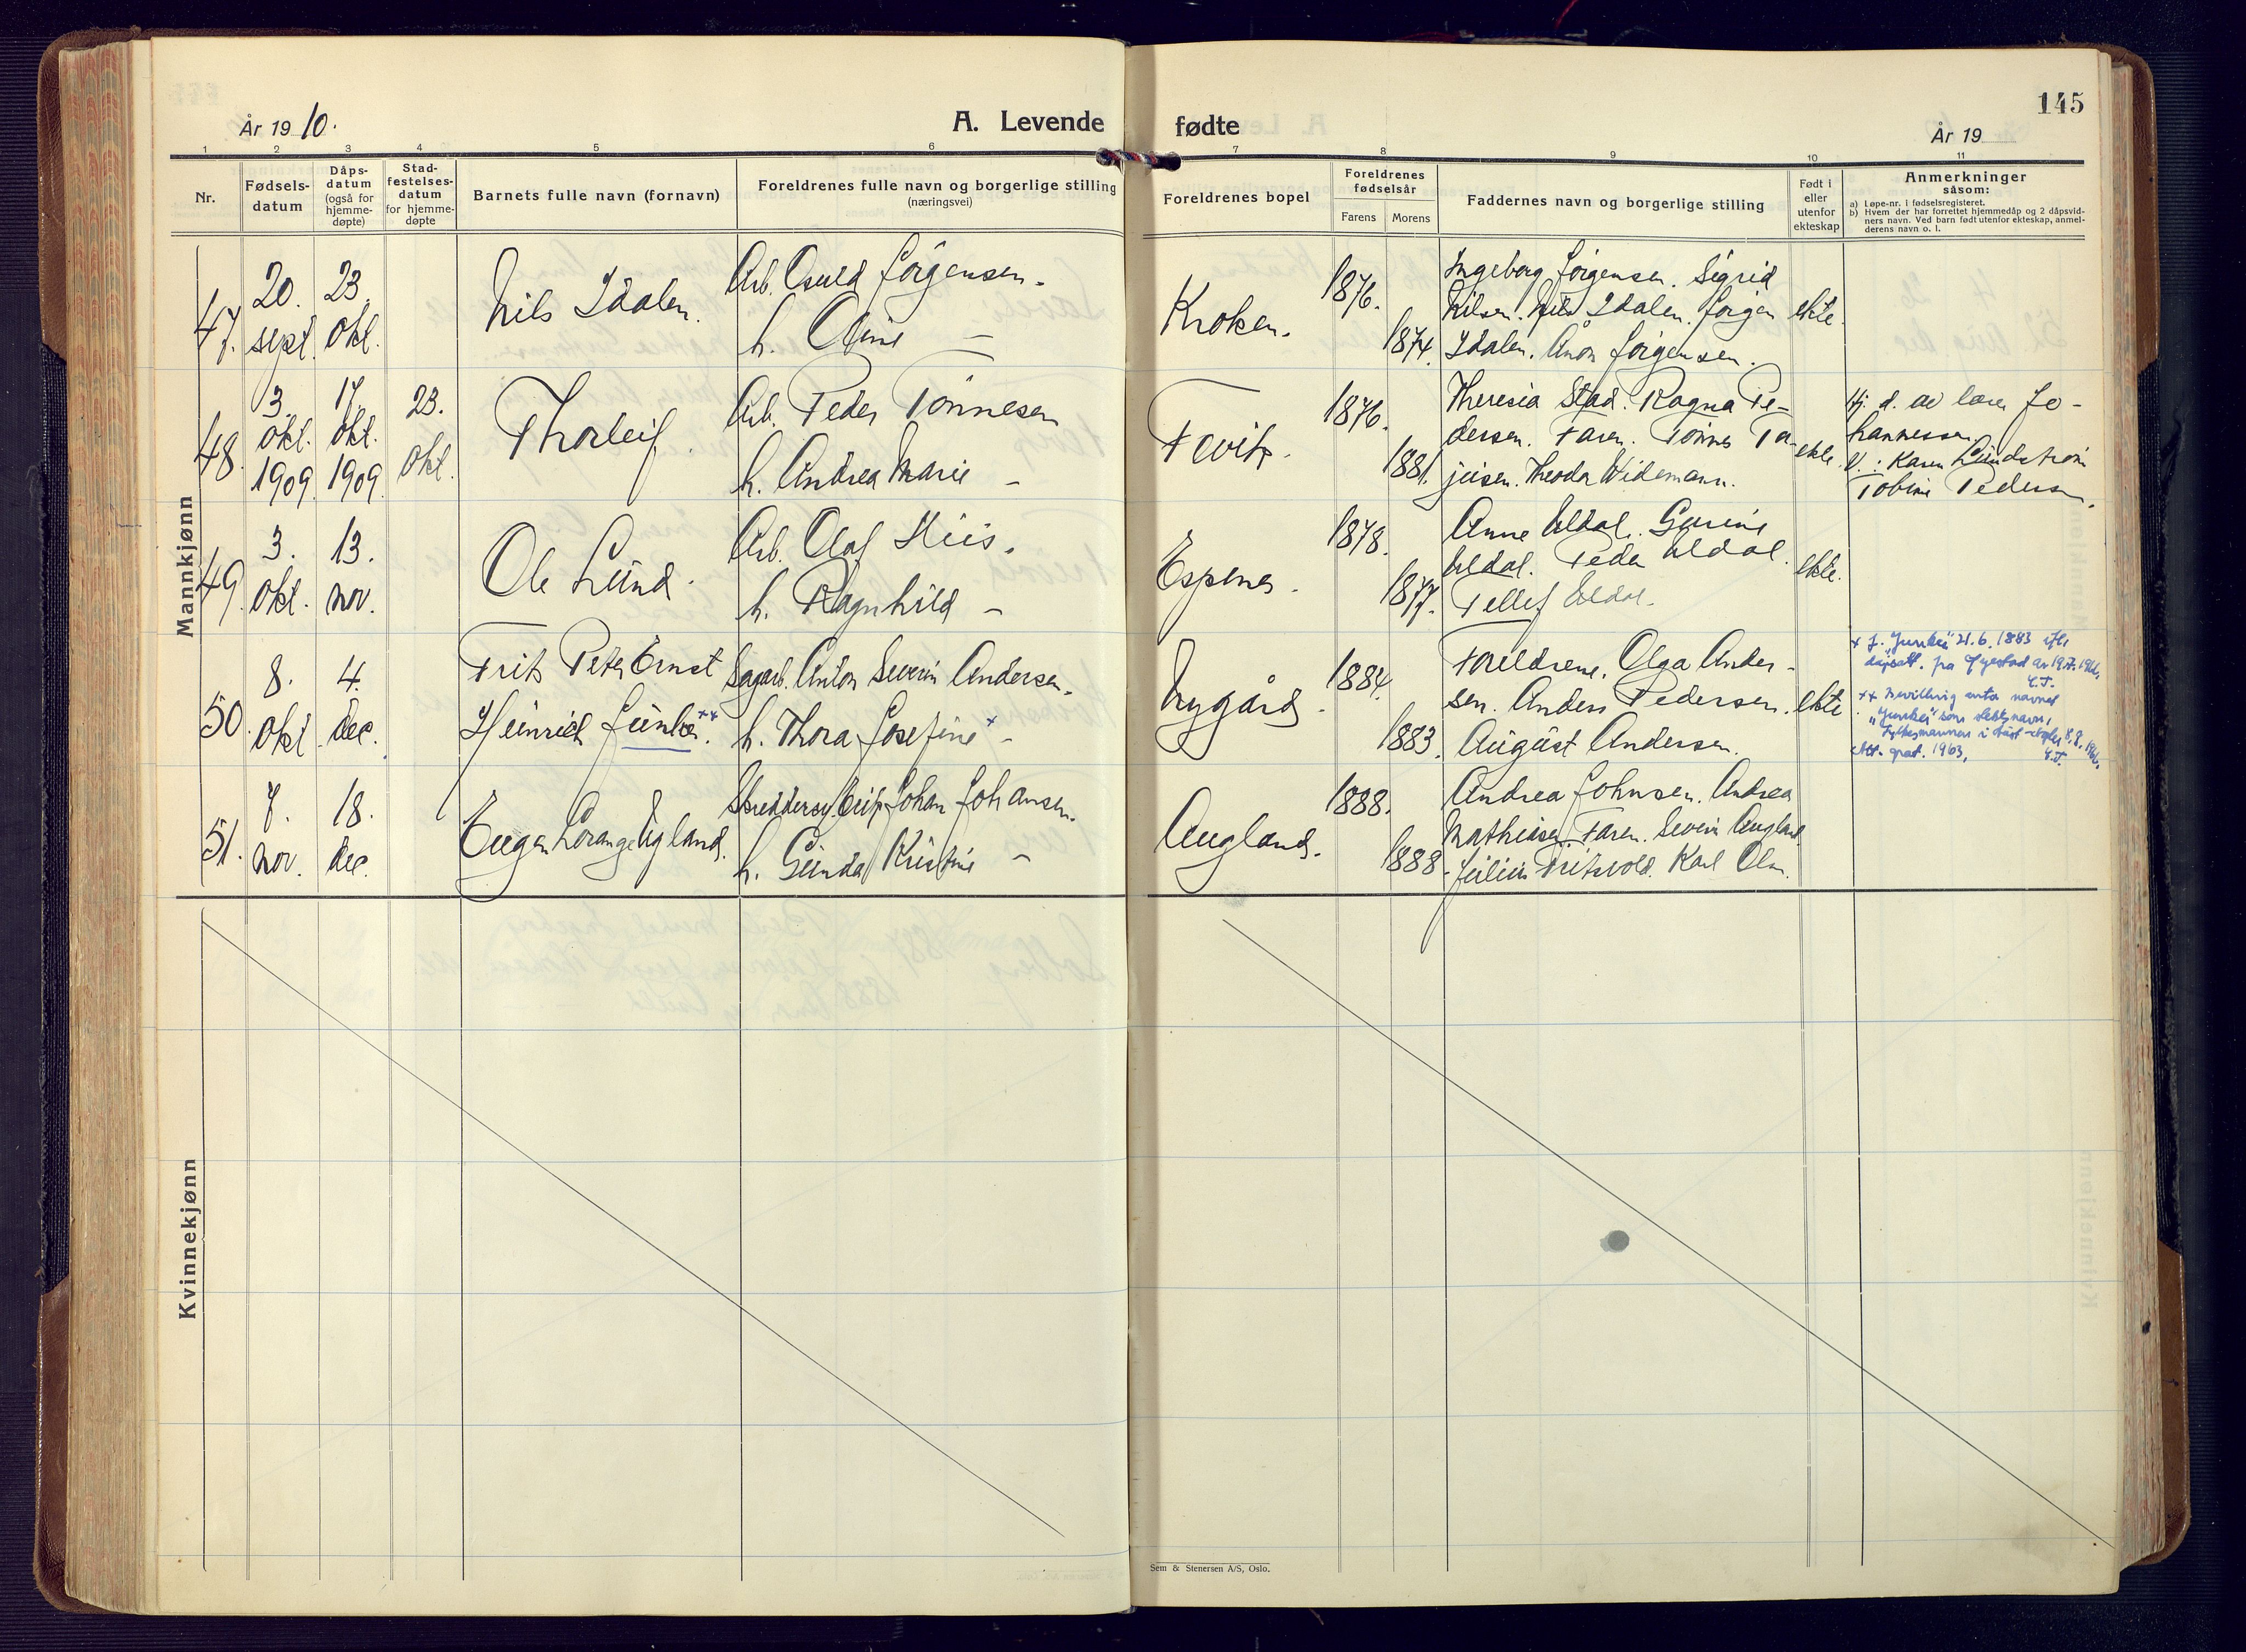 145
År 19 10.
A. Levende
fødte
År 19
1 2 3 4 5 6 7 8 9 10 11
Nr.
Fødsels-
datum
Dåps-
datum
(også for
hjemme-
døpte)
Stad-
festelses-
datum
for hjemme-
døpte
Barnets fulle navn (fornavn)
Foreldrenes fulle navn og borgerlige stilling
(næringsvei)
Foreldrenes bopel
Foreldrenes
fødselsår
Farens Morens
Faddernes navn og borgerlige stilling
Født i
eller
utenfor
ekteskap
Anmerkninger
såsom:
a) Løpe-nr. i fødselsregisteret.
b) Hvem der har forrettet hjemmedåp og 2 dåpsvid-
ners navn. Ved barn født utenfor ekteskap, anmel-
derens navn o. l.
Mannkjønn
47.
20.
sept.
23.
okt.
Nils Idalen.
Arb. Osuld Jörgensen.
h. Oline —
Kroken.
1876.
1874.
Ingeborg Jörgensen. Sigrid
Nilsen. Nils Idalen. Jörgen
Idalen. Anon Jörgensen.
ekte.
48.
3.
okt.
1909
17.
okt.
1909
23.
okt.
Thorleif.
Arb. Peder Tönnesen
h. Andrea Marie —
Fevik.
1876.
1881.
Theresia Stad. Ragna Pe-
dersen. Faren. Tönnes Ta-
jeisen. Theodor Widemann.
ekte.
Hj. d. av lærer Jo-
hannessen
V.: Karen Lundström
Tobine Pedersen.
49.
3.
okt.
13.
nov.
Ole Lund.
Arb. Olaf Hiis.
h. Ragnhild —
Espenes.
1878.
1877.
Anne Eldal. Gurine
Eldal. Peder Eldal.
Tellef Eldal.
ekte.
50.
8.
okt.
4.
dec.
Frits Peter Ernst
Heinrich Junker.××
Sagarb. Anton Severin Andersen.
h. Thora Josefine × —
Nygård.
1884.
1883.
Foreldrene. Olga Ander-
sen. Anders Pedersen.
August Andersen.
ekte
× f. "Junker" 21.6.1883 ifl.
dåpsatt. fra Gjestad av 19.7.1966.
E.T.
×× Bevilling anta navnet
"Junker" som slektsnavn,
Fylkesmannen i Aust-Agder 8.8.1966.
Att. grat. 1963. E.T.
51.
7.
nov.
18.
dec.
Eugen Lorange Ugland.
Skreddersv. Johan Johansen.
h. Gunda Kristine —
Augland.
1888.
1888.
Andrea Johnsen. Andrea
Mathiasen. Faren. Severin Augland.
Julius Fritsvold. Karl Olsn.
Kvinnekjønn
Sem & Stenersen A/S, Oslo.